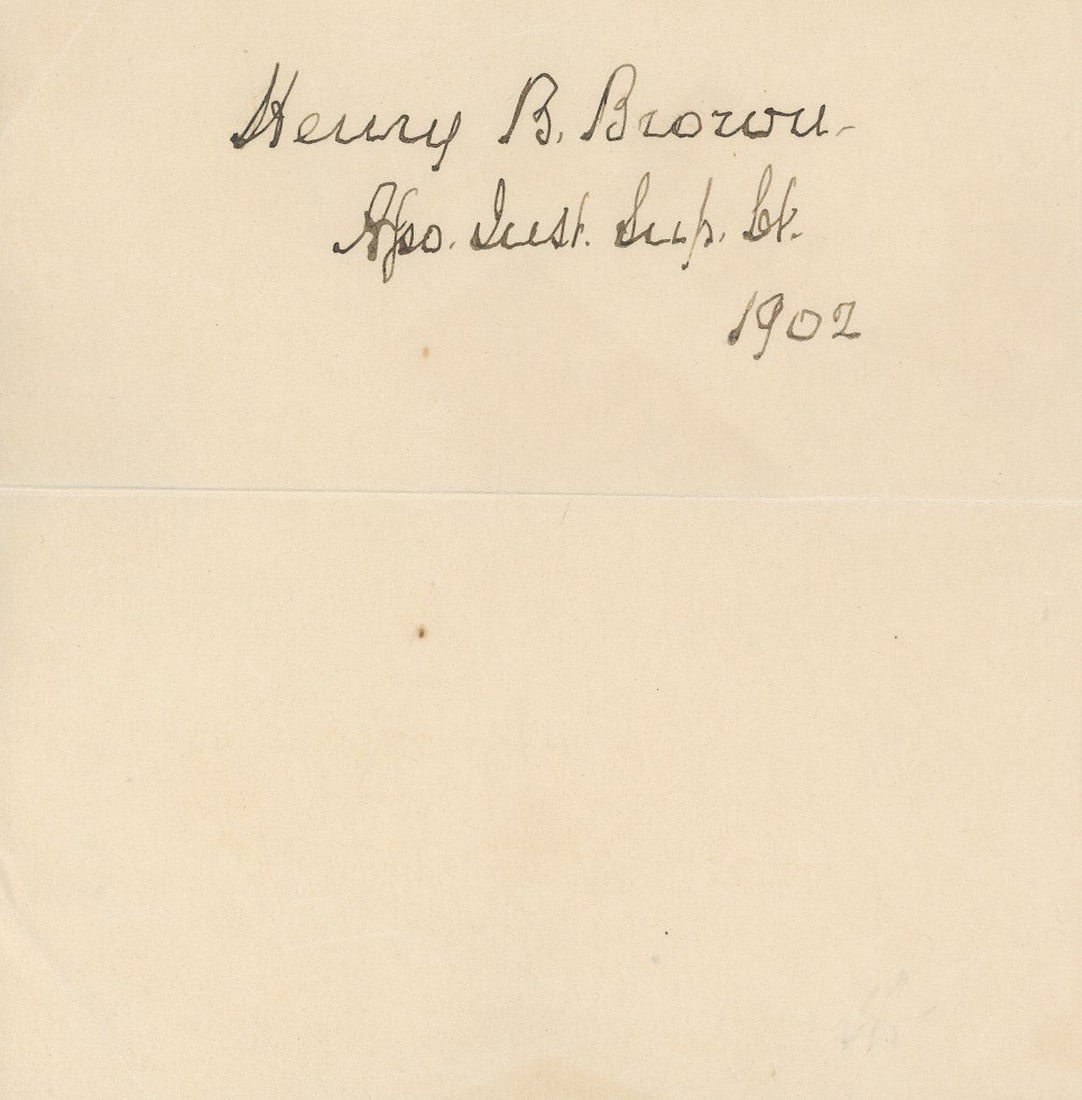 Henry B. Brown
Asso. Just. Sup. Ct.
1902